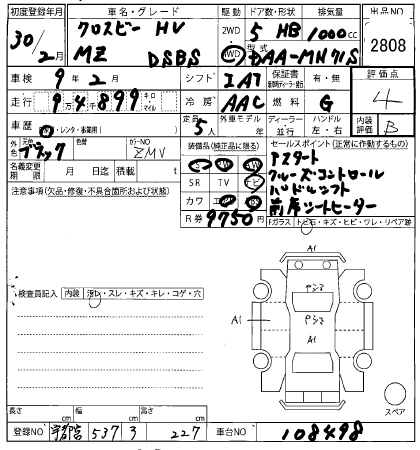 初度登録年月 車名・グレード 駆動 ドア数・形状 排気量 出品NO
30/2月 クロスビー HV MZ DSBS 2WD 4WD 5 HB 1000cc 2808
型式 DAA-MN71S
車検 9年2月 シフト IAT 保証書 有・無 評価点
走行 9万4899 キロ マイル 冷房 AAC 燃料 G 4
車歴 レンタ・事業用( ) 定員 5人 外車モデル 年 ディーラー 並行 ハンドル 左・右 内装評価 B
外色 元色 ブラック 色替 カラーNO ZMV 装備品(純正品に限る) セールスポイント(正常に作動するもの)
名義変更期限 月 日迄 積載 t
SR TV ナビ
カワ
R券 9750円
Pスタート
クルーズ・コントロール
パドルシフト
前席シートヒーター
注意事項(欠品・修復・不具合箇所および状態)
Fガラス トビ石・キズ・ヒビ・ワレ・リペア跡
A1
ヤシマ
A1 ヤシマ
A1
検査員記入 内装 汚レ・スレ・キズ・キレ・コゲ・穴
スペア
長さ cm 幅 cm 高さ cm
登録NO 宇都宮 537 3 227 車台NO 108498